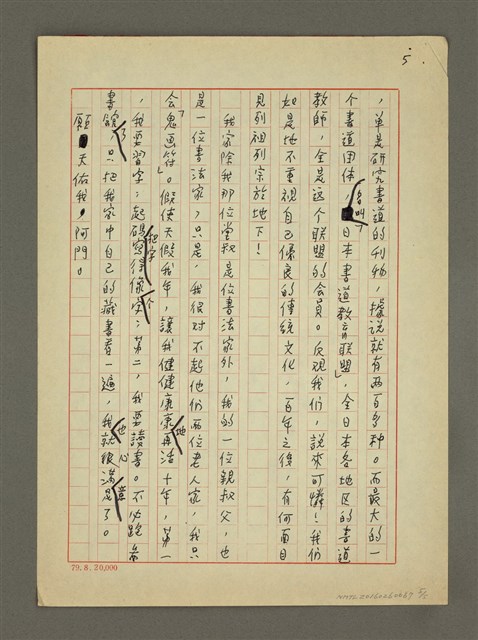 5.
，單是研究書道的刊物，據說就有兩百多种。而最大的一
个書道团体，名叫「日本書道教育联盟」，全日本各地区的書道
教師，全是这个联盟的会員。反观我们，說來可憐！我们
如是地不重視自己優良的傳統文化，百年之後，有何面目
見列祖列宗於地下！
我家除我那位堂叔是位書法家外，我的一位親叔父，也
是一位書法家，只是，我很对不起他们两位老人家，我只
会「鬼画符」。假使天假我年，讓我健健康康地再活十年，第一
，我要習字，起碼把字寫得像个字；第二，我要讀書。不必跑
書舘了，只把我家中自己的藏書看一遍，我也就心滿意足了。
願天佑我，阿門。
79.8.20,000